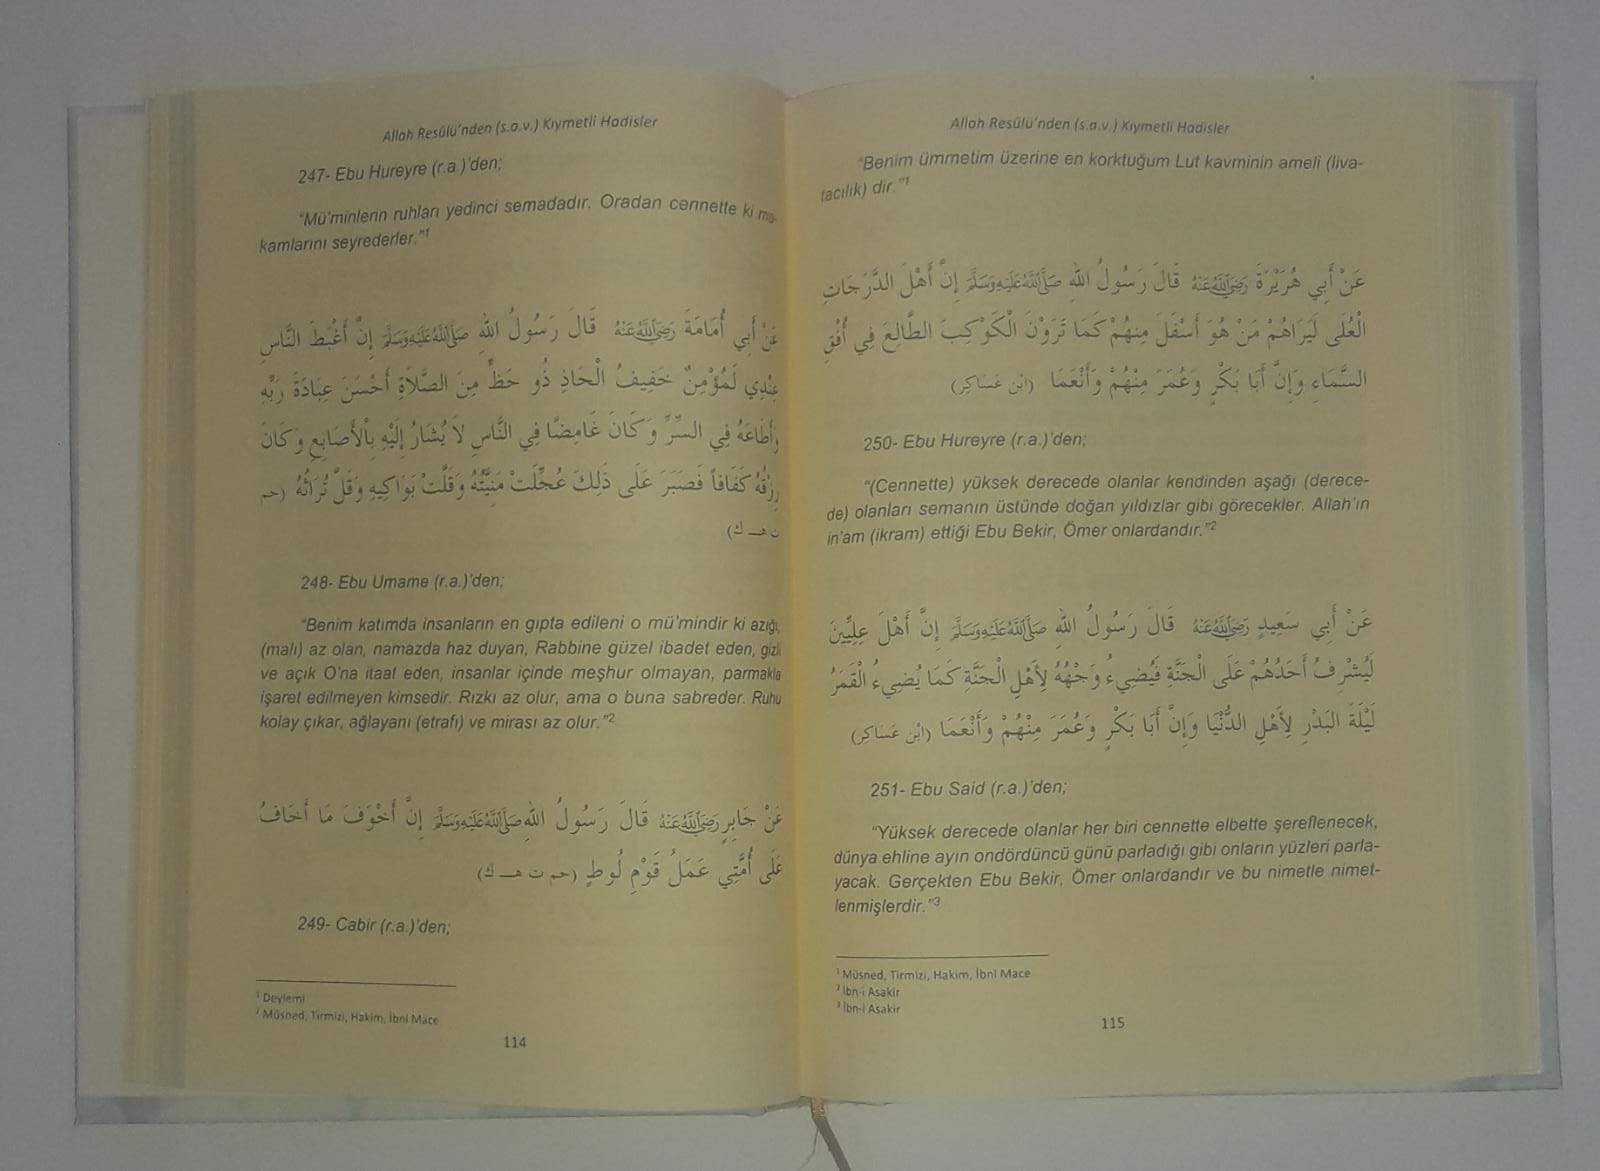 Allah Resûlü'nden (s.a.v.) Kıymetli Hadisler
247- Ebu Hureyre (r.a.)'den;
"Mü'minlerin ruhları yedinci semadadır. Oradan cennette ki ma-
kamlarını seyrederler."1
عَنْ أَبِي أُمَامَةَ رَضِيَ اللَّهُ عَنْهُ قَالَ رَسُولُ اللهِ صَلَّى اللَّهُ عَلَيْهِ وَسَلَّمَ إِنَّ أَغْبَطَ النَّاسِ
عِنْدِي لَمُؤْمِنٌ خَفِيفُ الْحَاذِ ذُو حَظٍّ مِنَ الصَّلَاةِ أَحْسَنَ عِبَادَةَ رَبِّهِ
وَأَطَاعَهُ فِي السِّرِّ وَكَانَ غَامِضًا فِي النَّاسِ لَا يُشَارُ إِلَيْهِ بِاْلأَصَابِعِ وَكَانَ
رِزْقُهُ كَفَافاً فَصَبَرَ عَلَى ذَلِكَ عُجِّلَتْ مَنِيَّتُهُ وَقَلَّتْ بَوَاكِيهِ وَقَلَّ تُرَاثُهُ (حم
ت هـ ك)
248- Ebu Umame (r.a.)'den;
"Benim katımda insanların en gıpta edileni o mü'mindir ki azığı,
(malı) az olan, namazda haz duyan, Rabbine güzel ibadet eden, gizli
ve açık O'na itaat eden, insanlar içinde meşhur olmayan, parmakla
işaret edilmeyen kimsedir. Rızkı az olur, ama o buna sabreder. Ruhu
kolay çıkar, ağlayanı (etrafı) ve mirası az olur."2
عَنْ جَابِرٍ رَضِيَ اللَّهُ عَنْهُ قَالَ رَسُولُ اللهِ صَلَّى اللَّهُ عَلَيْهِ وَسَلَّمَ إِنَّ أَخْوَفَ مَا أَخَافُ
عَلَى أُمَّتِي عَمَلُ قَوْمِ لُوطٍ (حم ت هـ ك)
249- Cabir (r.a.)'den;
1 Deylemi
2 Müsned, Tirmizi, Hakim, İbni Mace
114
Allah Resûlü'nden (s.a.v.) Kıymetli Hadisler
"Benim ümmetim üzerine en korktuğum Lut kavminin ameli (liva-
tacılık) dir."1
عَنْ أَبِي هُرَيْرَةَ رَضِيَ اللَّهُ عَنْهُ قَالَ رَسُولُ اللهِ صَلَّى اللَّهُ عَلَيْهِ وَسَلَّمَ إِنَّ أَهْلَ الدَّرَجَاتِ
الْعُلَى لَيَرَاهُمْ مَنْ هُوَ أَسْفَلَ مِنهُمْ كَمَا تَرَوْنَ الْكَوْكَبَ الطَّالِعَ فِي أُفْقِ
السَّمَاءِ وَإِنَّ أَبَا بَكْرٍ وَعُمَرَ مِنْهُمْ وَأَنْعَمَا (ابْن عَسَاكِر)
250- Ebu Hureyre (r.a.)'den;
"(Cennette) yüksek derecede olanlar kendinden aşağı (derece-
de) olanları semanın üstünde doğan yıldızlar gibi görecekler. Allah'ın
in'am (ikram) ettiği Ebu Bekir, Ömer onlardandır."2
عَنْ أَبِي سَعِيدٍ رَضِيَ اللَّهُ عَنْهُ قَالَ رَسُولُ اللهِ صَلَّى اللَّهُ عَلَيْهِ وَسَلَّمَ إِنَّ أَهْلَ عِلِيِّينَ
لَيُشْرِفُ أَحَدُهُمْ عَلَى الْجَنَّةِ فَيُضِيءُ وَجْهُهُ لِأَهْلِ الْجَنَّةِ كَمَا يُضِيءُ الْقَمَرُ
لَيْلَةَ الْبَدْرِ لِأَهْلِ الدُّنْيَا وَإِنَّ أَبَا بَكْرٍ وَعُمَرَ مِنْهُمْ وَأَنْعَمَا (ابْن عَسَاكِر)
251- Ebu Said (r.a.)'den;
"Yüksek derecede olanlar her biri cennette elbette şereflenecek,
dünya ehline ayın ondördüncü günü parladığı gibi onların yüzleri parla-
yacak. Gerçekten Ebu Bekir, Ömer onlardandır ve bu nimetle nimet-
lenmişlerdir."3
1 Müsned, Tirmizi, Hakim, İbni Mace
2 İbn-i Asakir
3 İbn-i Asakir
115